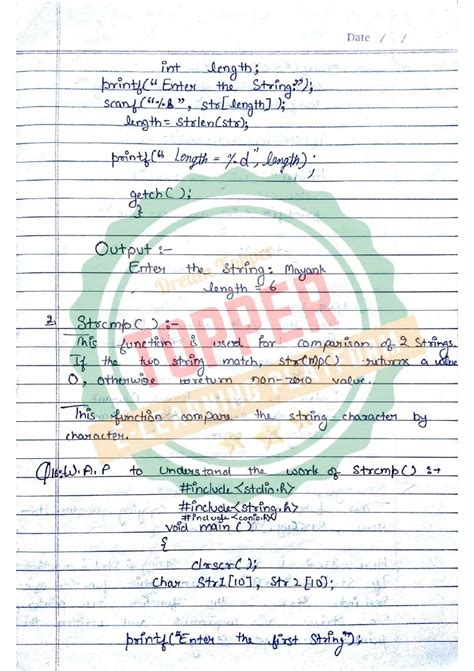 Date / /
int length;
printf("Enter the String:");
scanf("%s", str[length]);
length = strlen(str);
printf("Length = %d", length);
getch();
}
Output :-
Enter the string: Mayank
length = 6
2. Strcmp() :-
This function is used for comparison of 2 Strings.
If the two string match, str(mp() return a value
0, otherwise return non-zero value.
This function compare the string character by
character.
W.A.P to understand the work of Strcmp() :→
#include<stdio.h>
#include<string.h>
#include<conio.h>
void main()
{
clrscr();
char Str1[10], Str2[10];
printf("Enter the first String");
Dream Topper
TOPPER